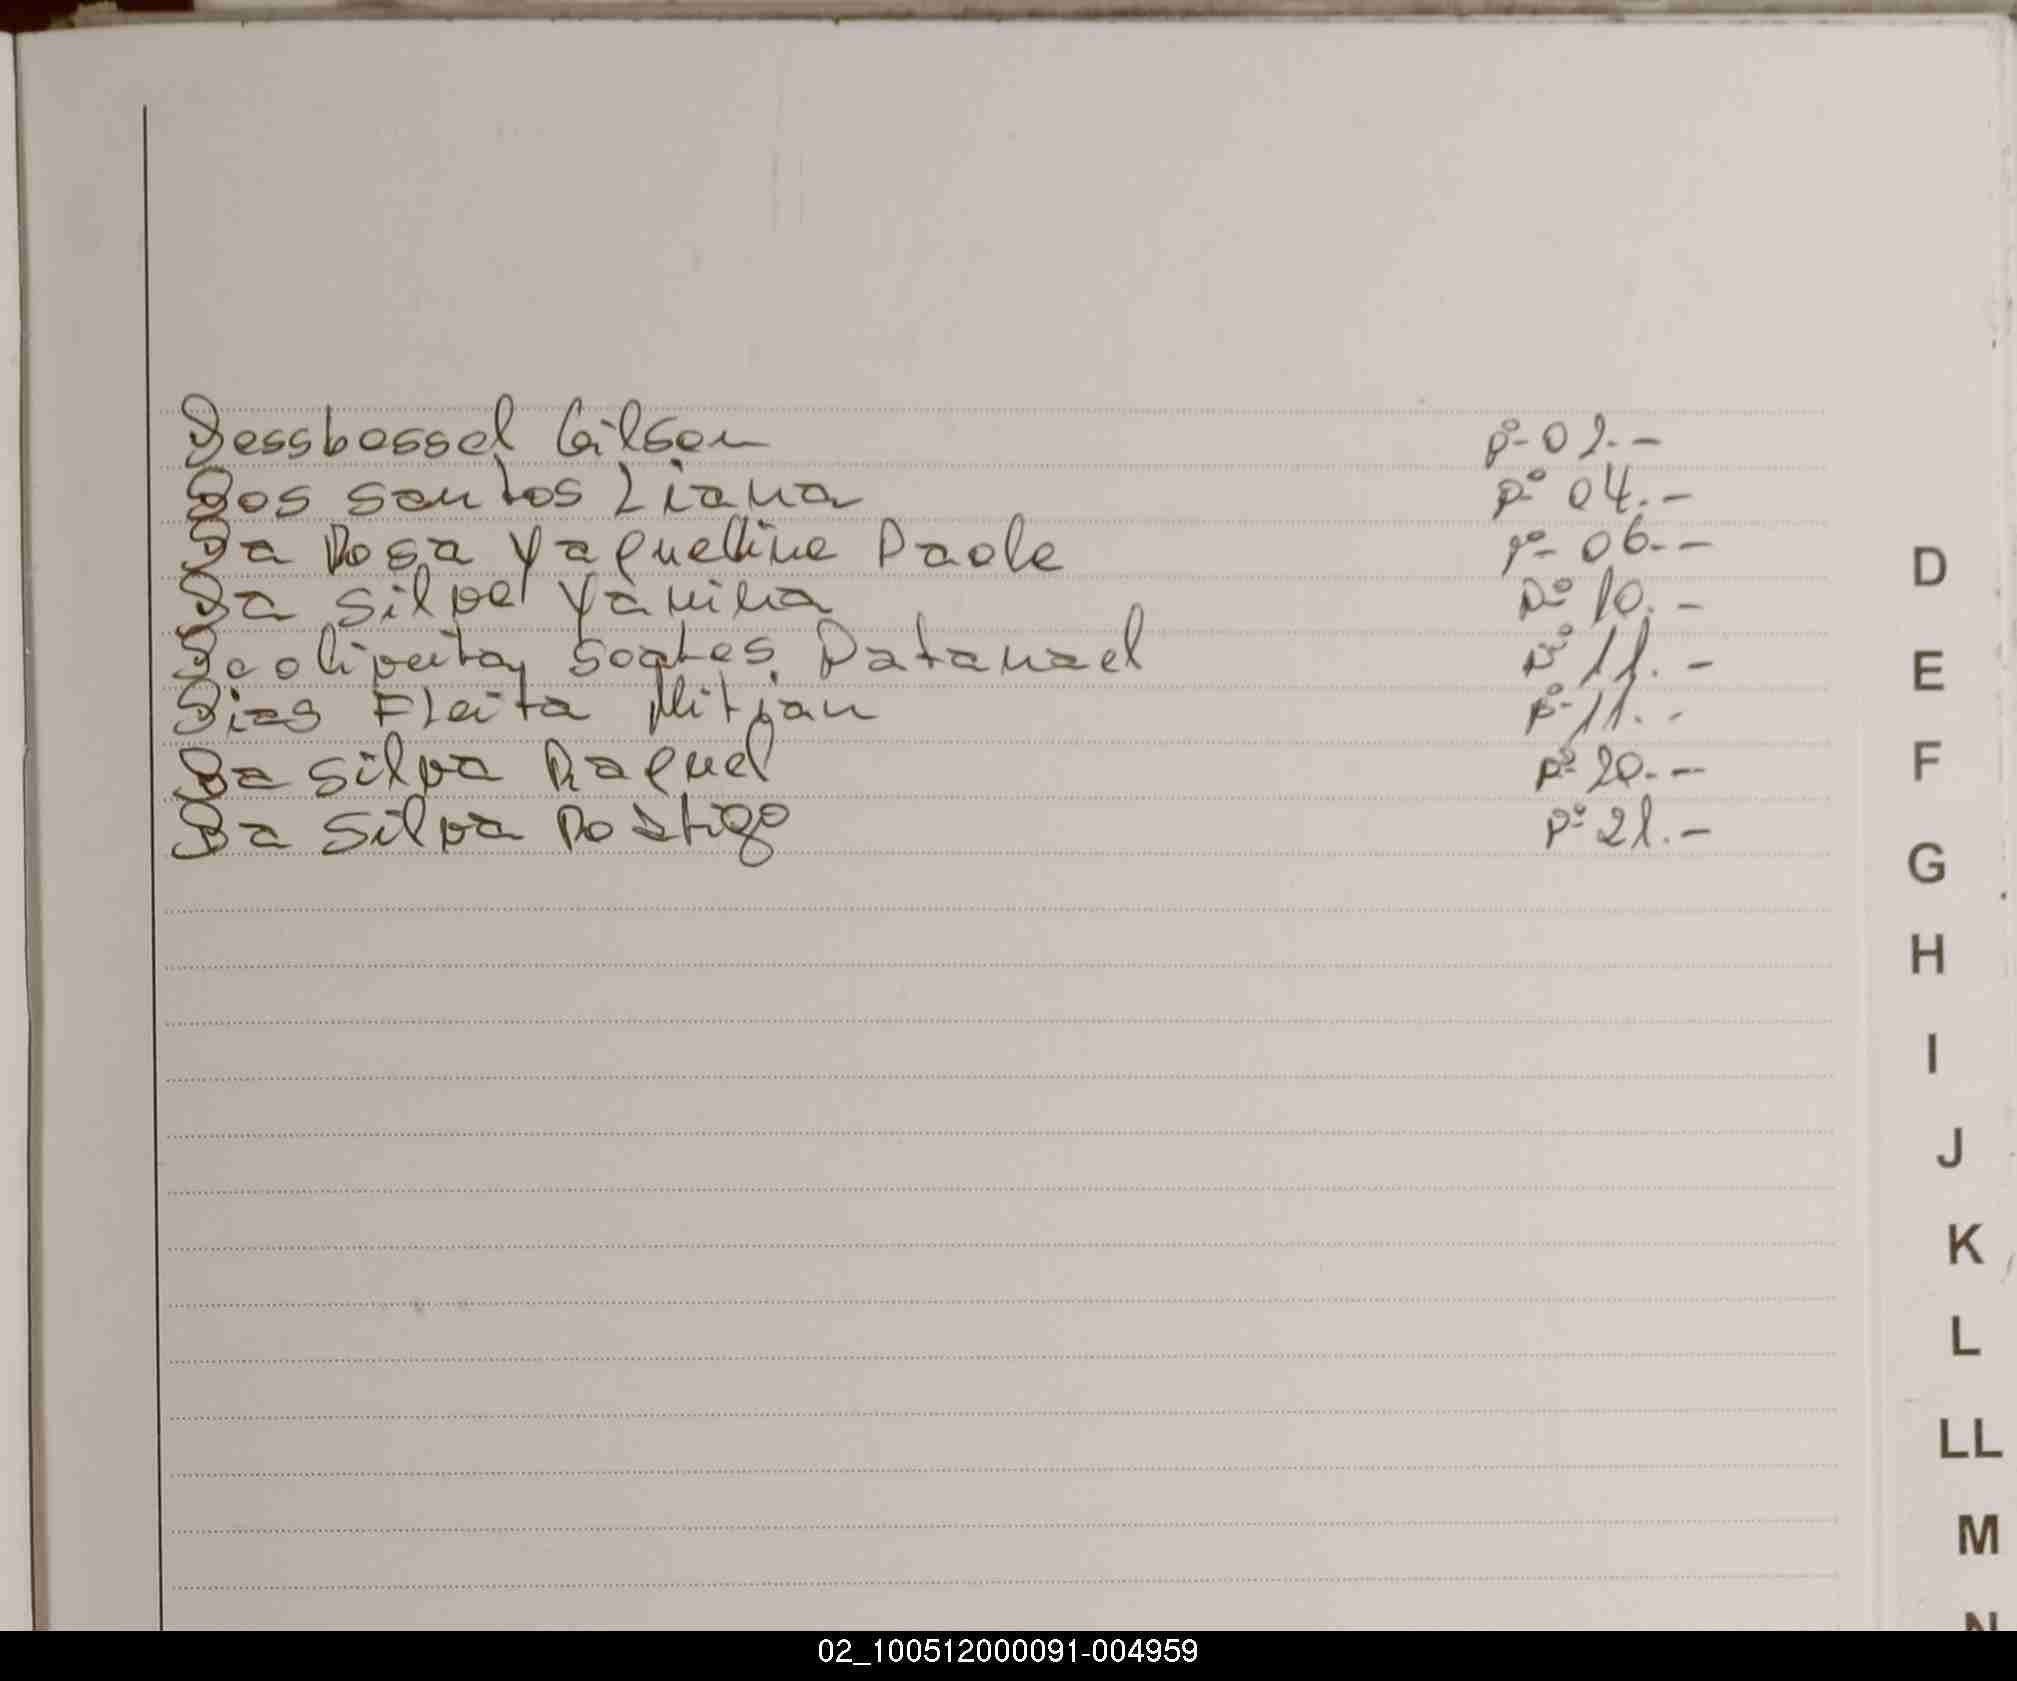 Dessbessel Gilson P°- 02.-
Dos santos Liana P° 04.-
Da Rosa Yaqueline Paola P°- 06.-
Da Silva Yanina P° 10.-
De oliveira, Soares, Natanael P° 11.-
Dias Fleita Mirian P°- 11.-
Da Silva Raquel P°- 20.-
Da Silva Rodrigo P° 21.-
D
E
F
G
H
I
J
K
L
LL
M
N
02_100512000091-004959